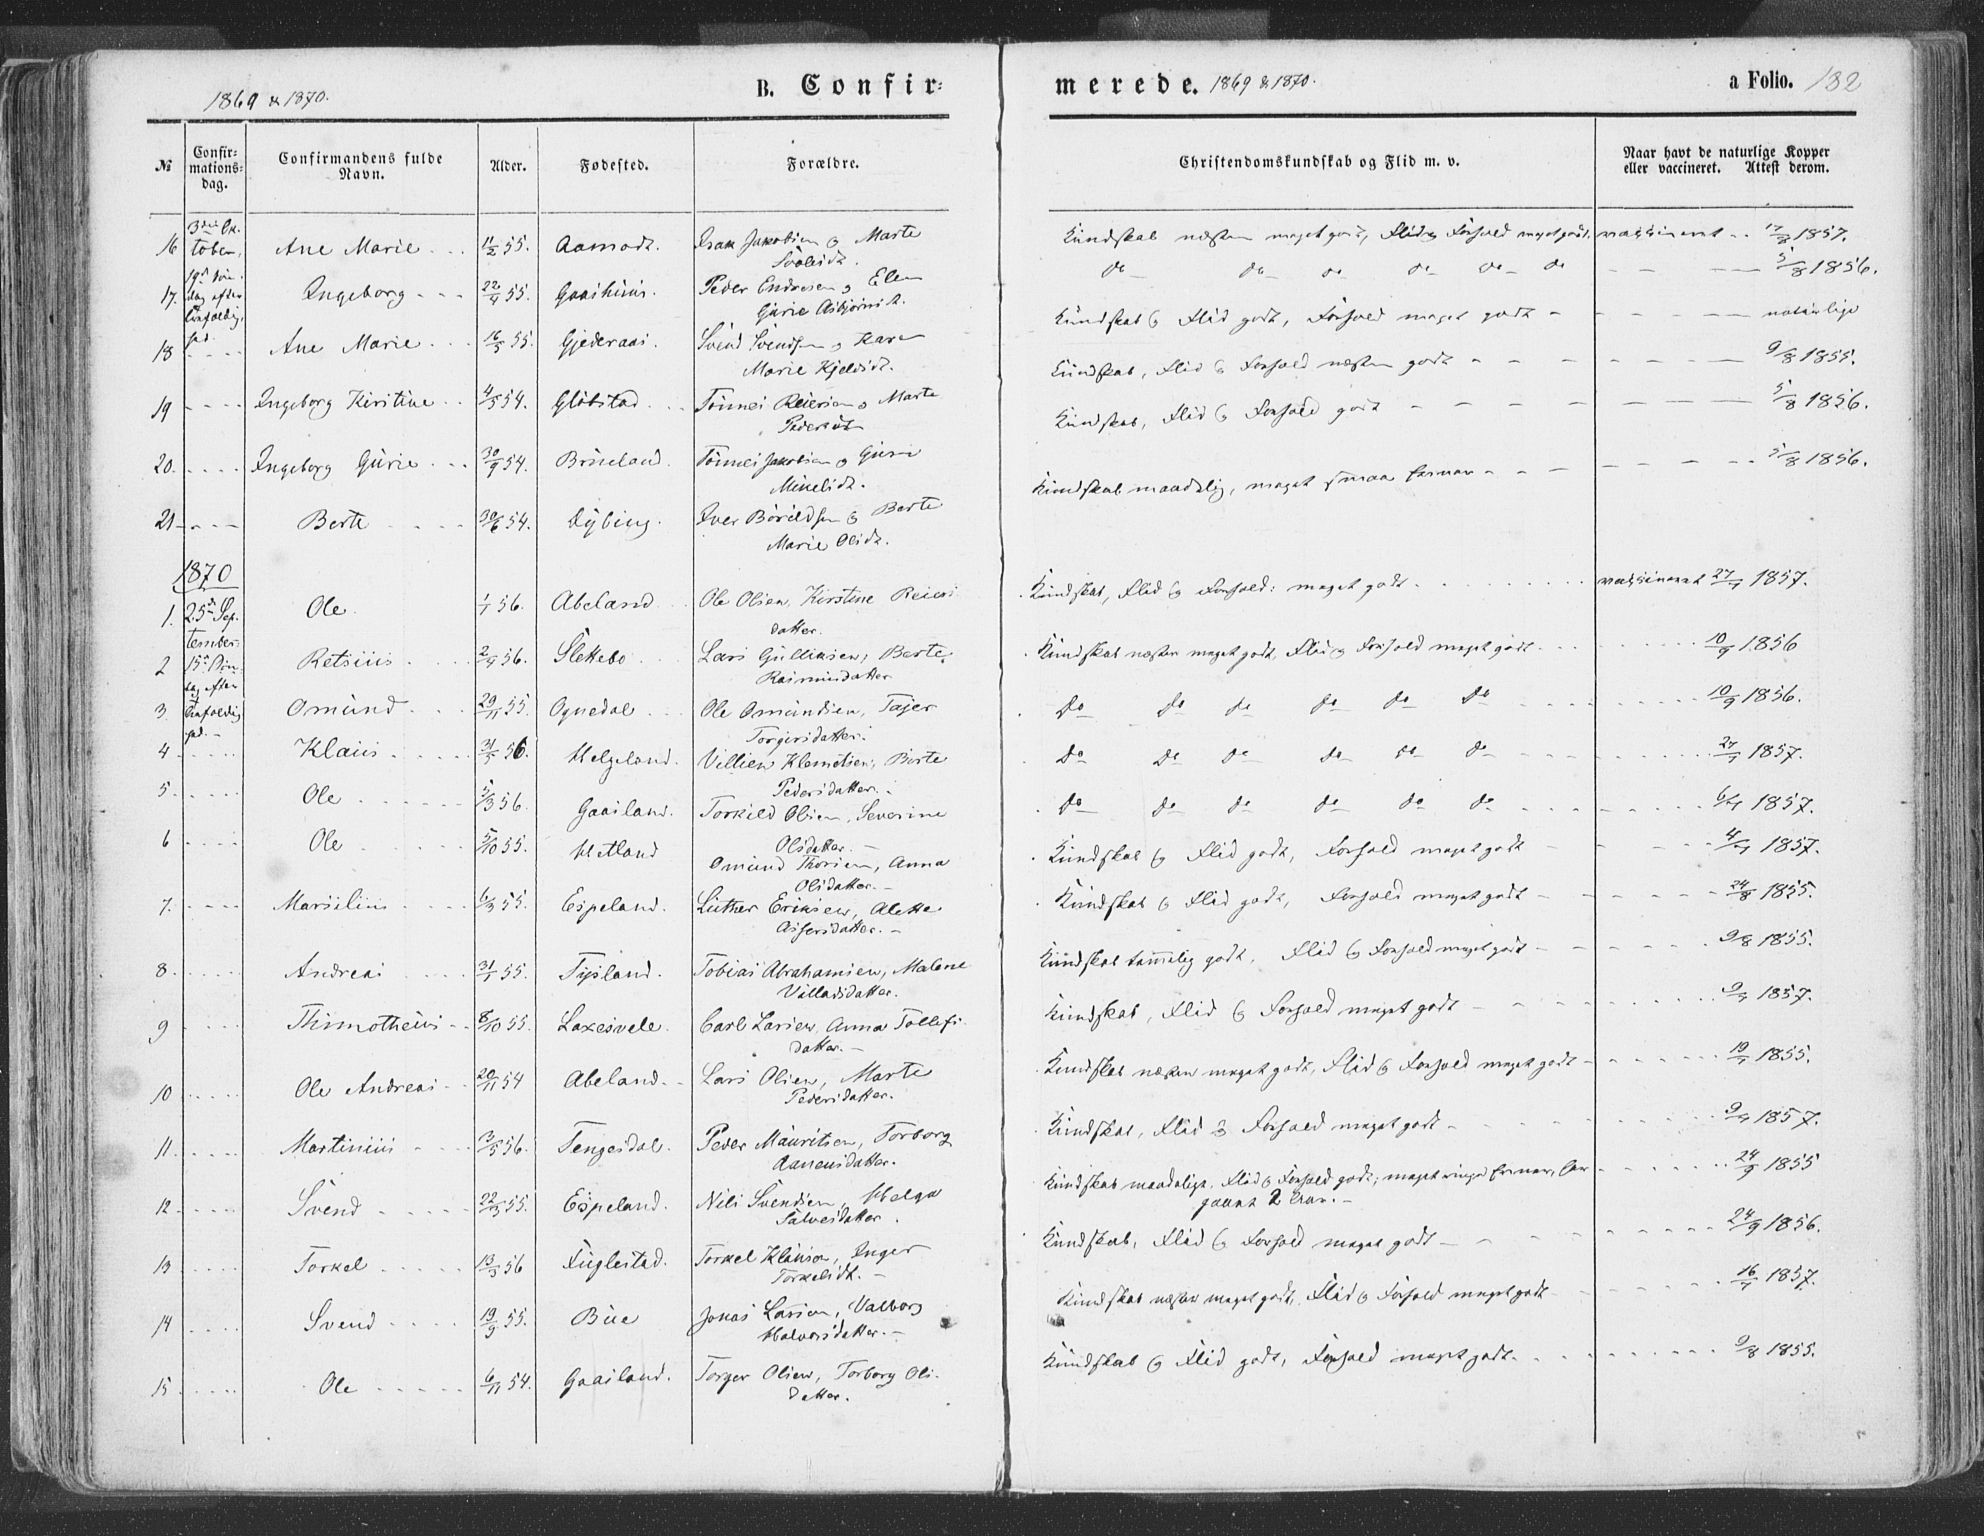 1869 & 1870.
B. Confir-
merede. 1869 & 1870.
a Folio. 132
№
Confir-
mations-
dag.
Confirmandens fulde
Navn.
Alder.
Fødested.
Forældre.
Christendomskundskab og Flid m. v.
Naar havt de naturlige Kopper
eller vaccineret. Attest derom.
16 Ane Marie 11/2 55. Aamodt. Isak Jakobsen og Marte
Kundskab næsten meget godt, Flid og Forhold meget godt. vaccineret 1857.
17. Ingeborg 22/4 55. Peder Endresen og Elen
Gurie Asbjørnsd.
do do do do do do 5/8 1856.
18 Ane Marie 16/5 55. Gjederaas. Svend Svendsen og Karen
Marie Kjelsd.
Kundskab og Flid godt, Forhold meget godt naturlige
19 Ingeborg Kirstine 4/5 54. Gløbstad. Tønnes Reiersen og Marte
Pedersdt
Kundskab, Flid og Forhold næsten godt 9/8 1855.
20. Ingeborg Gurie 30/9 54. Brueland. Tønnes Jakobsen og Guri
Kundskab, Flid og Forhold godt 5/8 1856.
21 Berte 30/6 54. Dybing. Iver Bårdsen og Berte
Marie Olsdt.
Kundskab maadelig, meget smaa Evner 5/8 1856.
1870
1. 25de Sep-
tember
Ole 1/1 56. Abeland Ole Olsen, Kirstine Reiers
datter.
Kundskab, Flid og Forhold: meget godt vaccineret 27/7 1857.
2 15de Søn-
dag efter
Retsius 2/4 56. Slettebo Lars Gulliksen, Berte
Rasmusdatter
Kundskab næsten meget godt, Flid og Forhold meget godt 10/9 1856
3. Omund 29/11 55. Ognedal Ole Omundsen, Tajer
Torgersdatter.
do do do do do do 10/9 1856.
4 Klaus 31/5 56. Helgeland. Villien Klemetsen, Berte
Pedersdatter.
do do do do do do 27/7 1857.
5 Ole 5/3 56. Gaasland. Torkild Olsen, Severine
Olsdatter.
do do do do do do 6/7 1857.
6 Ole 5/10 55. Hetland Omund Thorsen, Anna
Olsdatter.
Kundskab og Flid godt, Forhold meget godt 4/7 1857.
7. Marsilius 6/3 55. Espeland. Luther Eriksen, Aletta
Assersdatter.
Kundskab og Flid godt, Forhold meget godt 24/8 1855.
8. Andreas 31/1 55. Tysland. Tobias Abrahamsen, Malene
Villadsdatter.
Kundskab temmelig godt, Flid og Forhold meget godt 9/8 1855.
9 Thimotheus 8/10 55. Laxesvele. Carl Larsen, Anna Tollefs
datter.
Kundskab, Flid og Forhold meget godt 9/7 1857.
10 Ole Andreas 20/11 54 Abeland. Lars Olsen, Marte
Pedersdatter.
Kundskab næsten meget godt, Flid og Forhold meget godt 1855.
11. Martinius 3/5 56. Tengesdal. Peder Mauritsen, Torborg
Aanensdatter.
Kundskab, Flid og Forhold meget godt 9/7 1857.
12 Svend 22/3 55. Espeland. Nils Svendsen, Helga
Salvesdatter.
Kundskab maadelige, Flid og Forhold godt; meget ringe Evner,
24/9 1855
13 Torkel 13/3 56 Fuglestad. Torkel Klausen, Inger
Torkelsdt.
Kundskab, Flid og Forhold meget godt 24/9 1856.
14 Svend 19/9 55. Bue Jonas Larsen, Valborg
Halvorsdatter.
Kundskab næsten meget godt, Flid og Forhold meget godt 16/7 1857.
15 Ole 6/11 54. Gaasland. Torger Olsen, Torborg Ols-
datter.
Kundskab og Flid godt, Forhold meget godt. 9/8 1855.